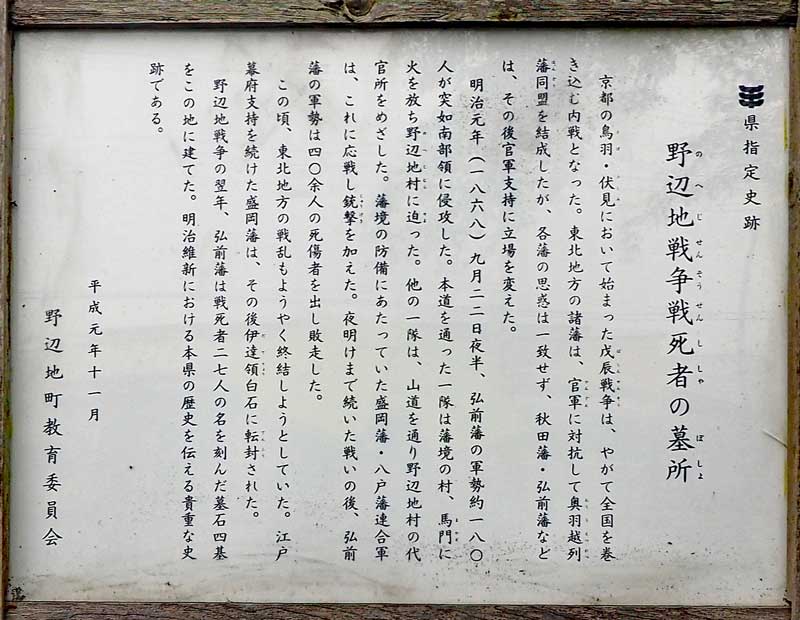 県指定史跡
野辺地戦争戦死者の墓所
のへじせんそうせんししゃ ぼしょ
京都の鳥羽・伏見において始まった戊辰戦争は、やがて全国を巻
き込む内戦となった。東北地方の諸藩は、官軍に対抗して奥羽越列
藩同盟を結成したが、各藩の思惑は一致せず、秋田藩・弘前藩など
は、その後官軍支持に立場を変えた。
明治元年（一八六八）九月二二日夜半、弘前藩の軍勢約一八〇
人が突如南部領に侵攻した。本道を通った一隊は藩境の村、馬門に
火を放ち野辺地村に迫った。他の一隊は、山道を通り野辺地村の代
官所をめざした。藩境の防備にあたっていた盛岡藩・八戸藩連合軍
は、これに応戦し銃撃を加えた。夜明けまで続いた戦いの後、弘前
藩の軍勢は四〇余人の死傷者を出し敗走した。
この頃、東北地方の戦乱もようやく終結しようとしていた。江戸
幕府支持を続けた盛岡藩は、その後伊達領白石に転封された。
野辺地戦争の翌年、弘前藩は戦死者二七人の名を刻んだ墓石四基
をこの地に建てた。明治維新における本県の歴史を伝える貴重な史
跡である。
平成元年十一月
野辺地町教育委員会